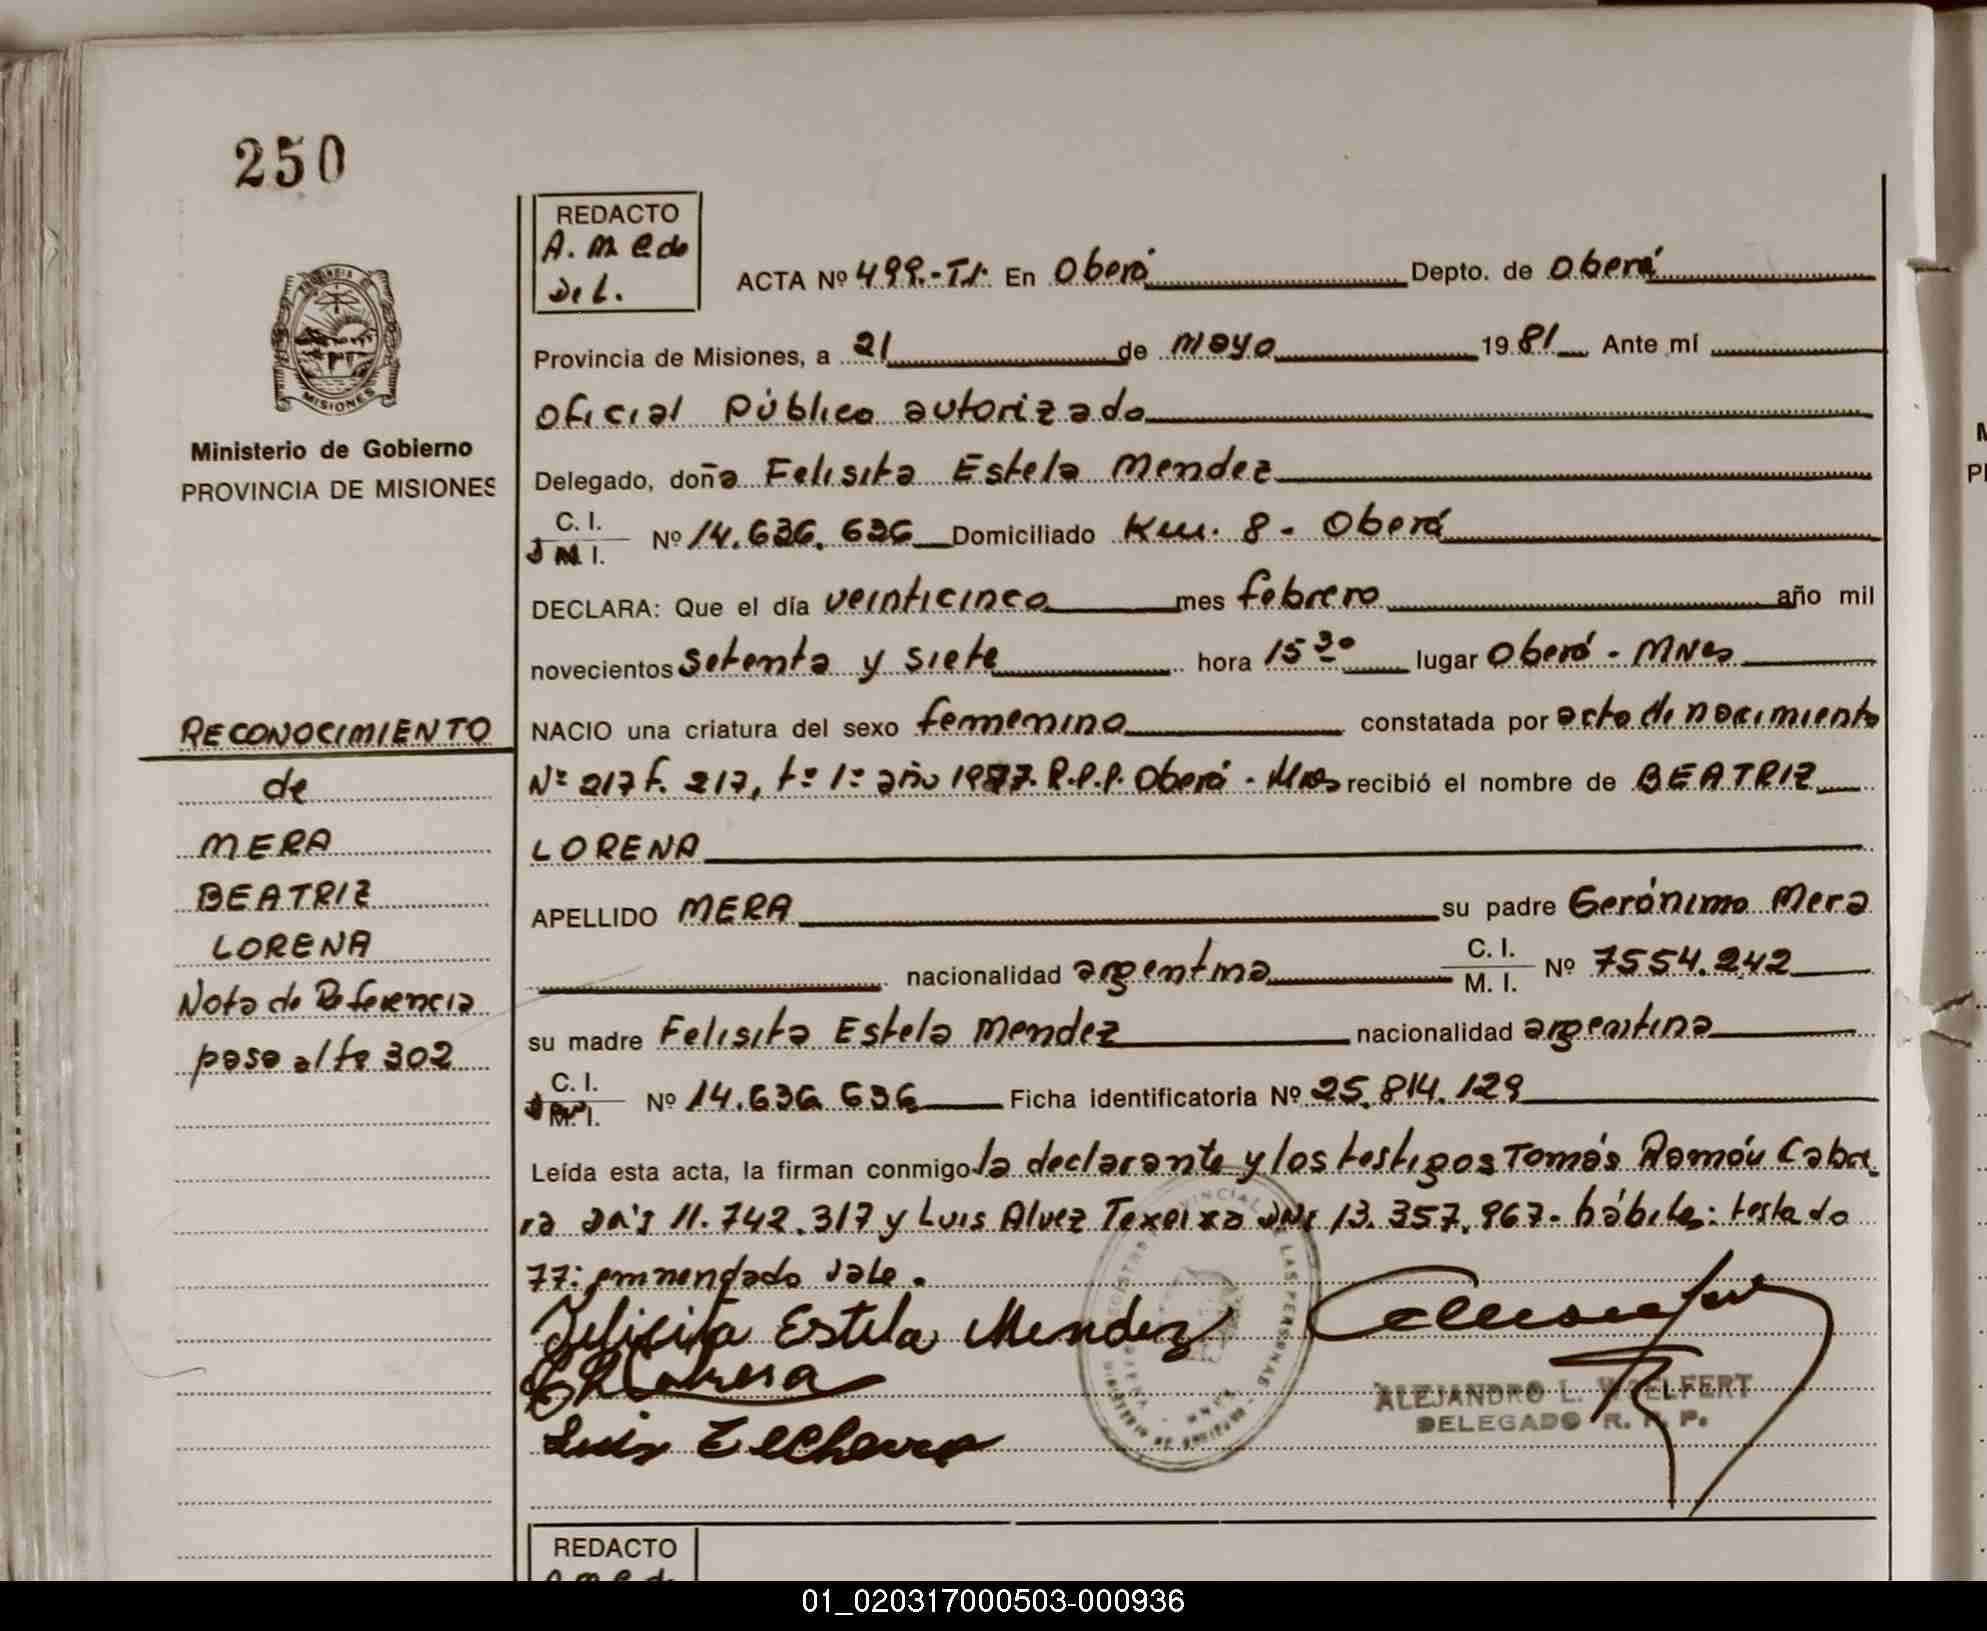 250
REDACTO
A. M C do
De L.
ACTA Nº 499.-TI: En Oberá Depto. de Oberá
Provincia de Misiones, a 21 de mayo 1981 Ante mí
MISIONES
oficial Público autorizado
Ministerio de Gobierno
PROVINCIA DE MISIONES
Delegado, doña Felisita Estela Mendez
C. I.
M. I. Nº 14.636.636 Domiciliado Km. 8 - Oberá
DECLARA: Que el día veinticinco mes febrero año mil
novecientos setenta y siete hora 15 30 lugar Oberá - MNes
RECONOCIMIENTO
de
MERA
BEATRIZ
LORENA
Nota de Referencia
pasa al fo 302
NACIO una criatura del sexo femenino constatada por acta de nacimiento
Nº 217 f. 217, tº 1º año 1977. R.P.P. Oberá - Mnes recibió el nombre de BEATRIZ
LORENA
APELLIDO MERA su padre Gerónimo Mera
nacionalidad argentina C. I. M. I. Nº 7554.242
su madre Felisita Estela Mendez nacionalidad argentina
C. I.
M. I. Nº 14.636 636 Ficha identificatoria Nº 25.814.129
Leída esta acta, la firman conmigo la declarante y los testigos Tomás Ramón Cabre
ra DNI 11.742.317 y Luis Alvez Texeixa DNI 13.357.967- hábiles: testado
77: enmendado vale.
Felicita Estela Mendez
Luis
ALEJANDRO L. WOELFERT
DELEGADO R. P. P.
REDACTO
01_020317000503-000936